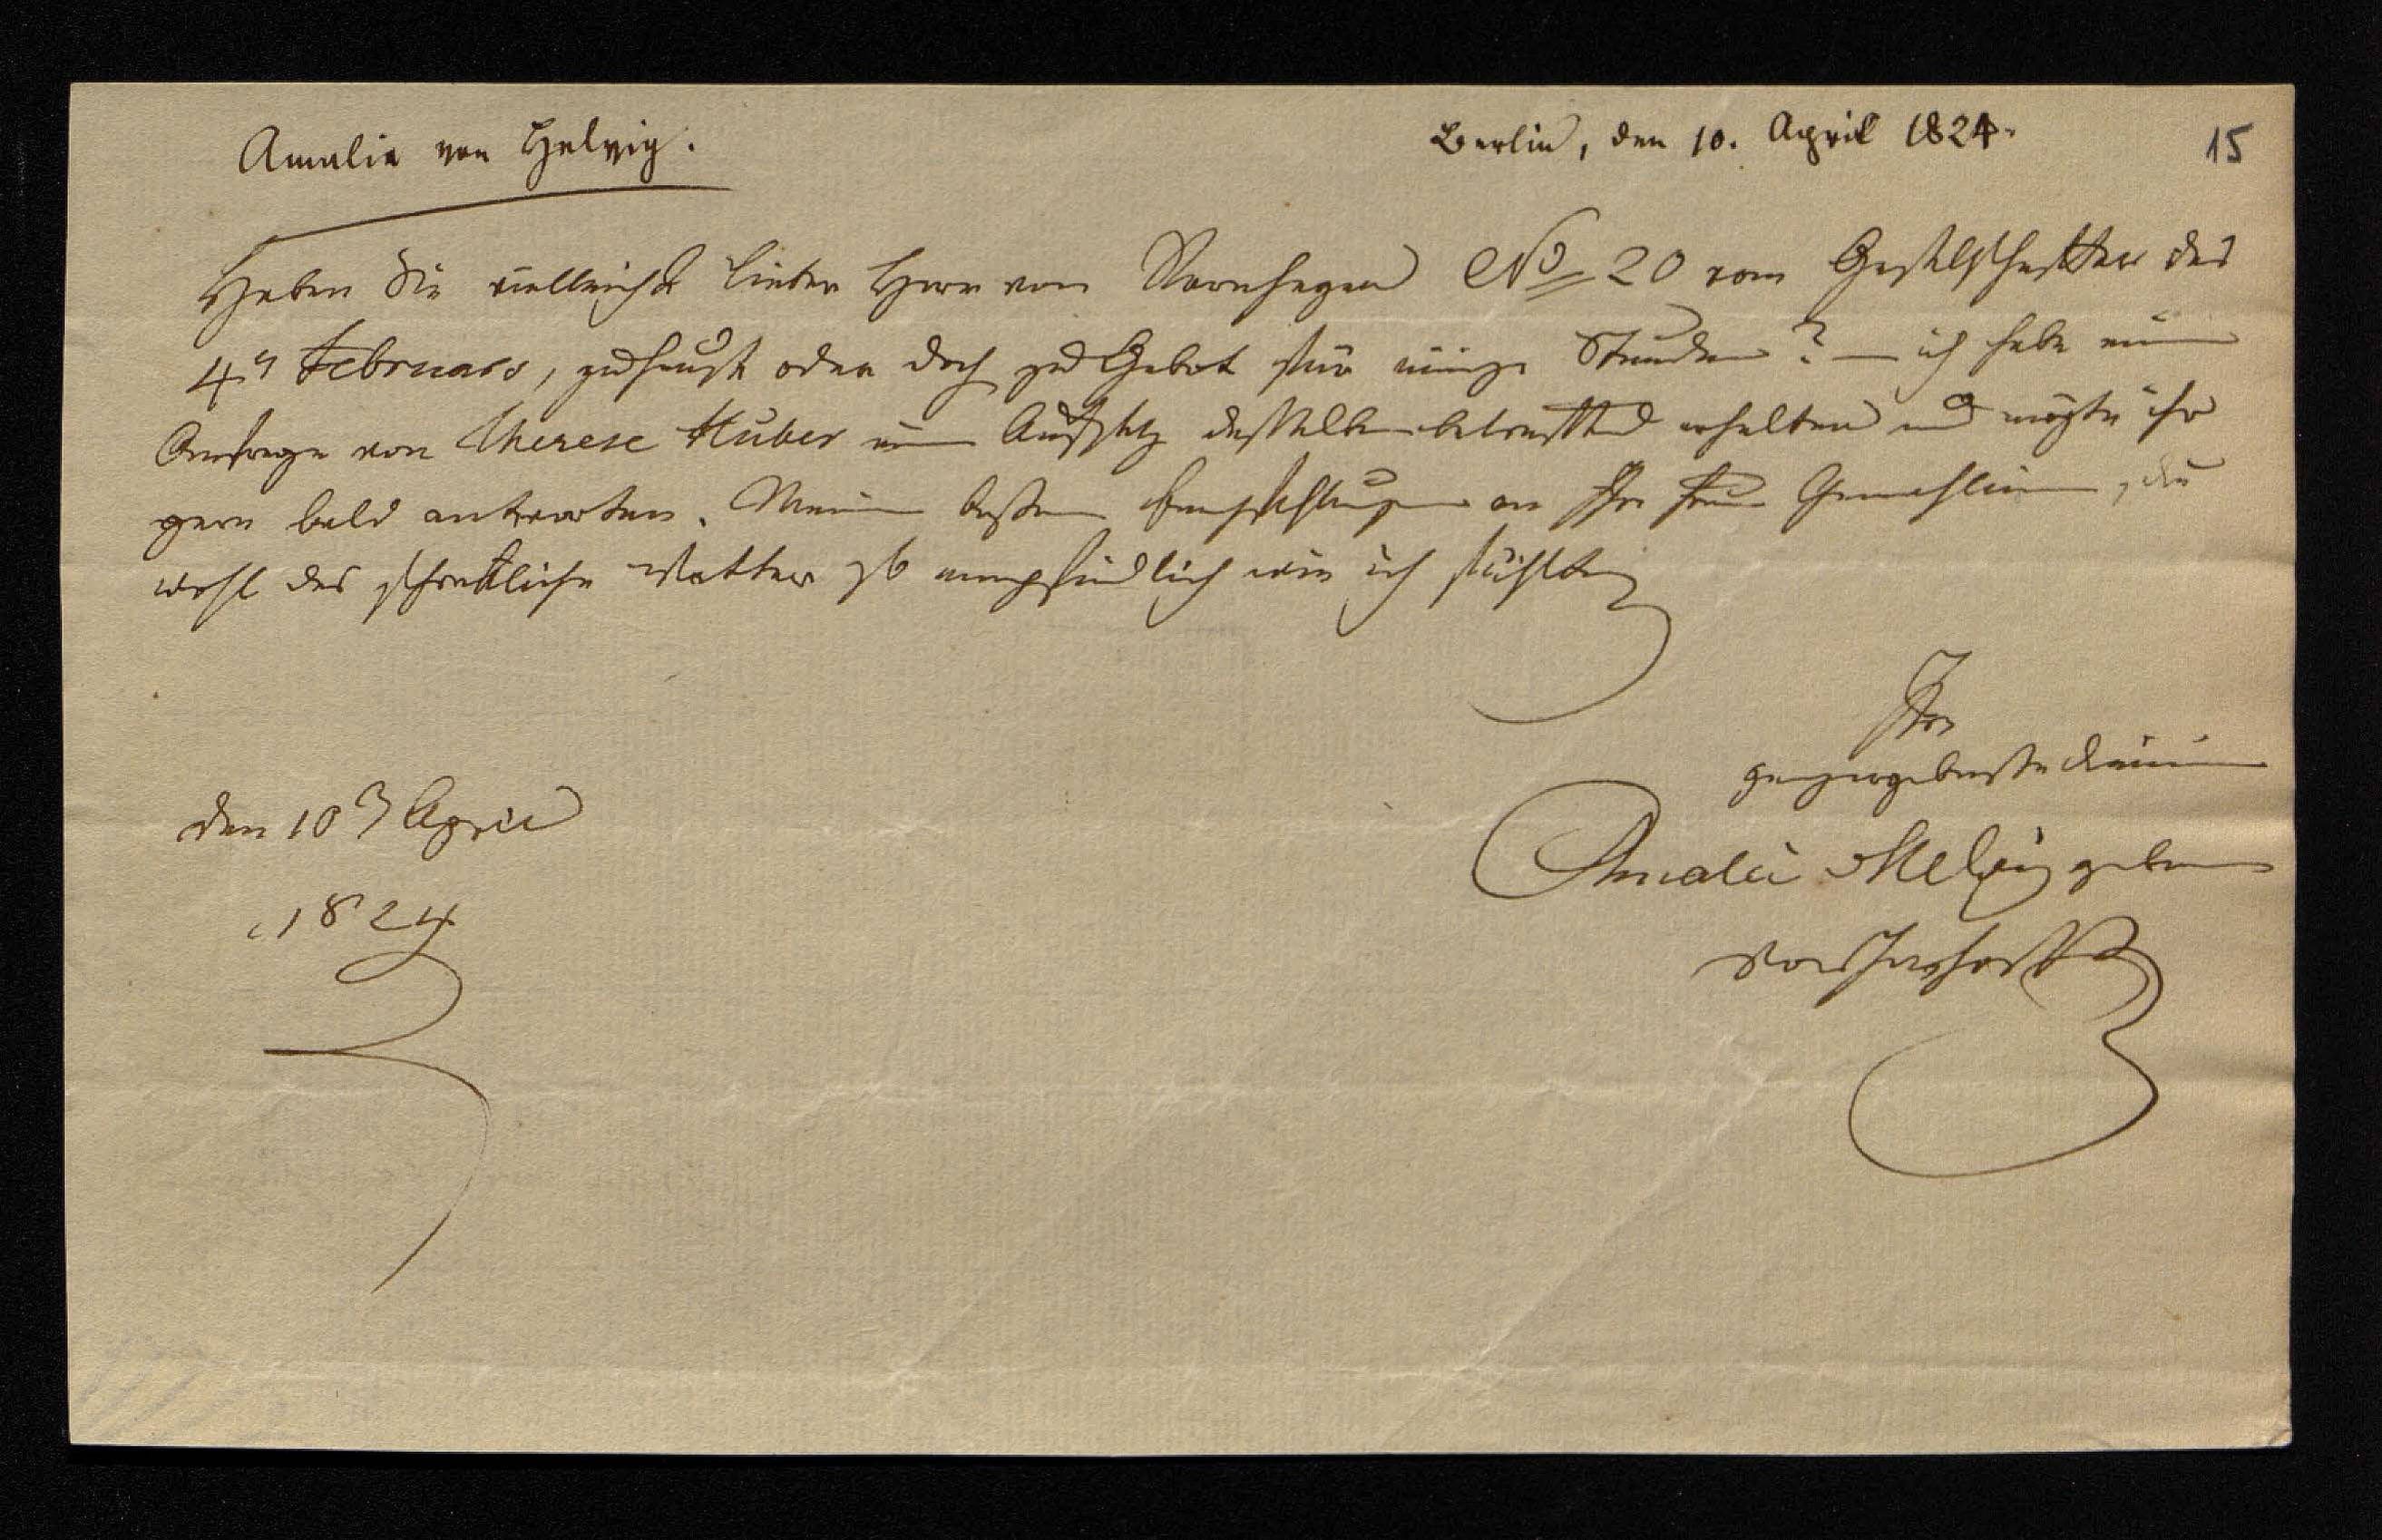 Amalia von Helvig.
Berlin, den 10. April 1824.
15
Haben Sie vielleicht lieber Herr von Varnhagen No 20 vom Gesellschafter des
4n Februars, zuhauße oder doch zu Gebot für einige Stunden? – ich habe eine
Anfrage von Therese Huber einen Aufsatz desselben betreffend erhalten und mögte ihr
gern bald antworten. Meine besten Empfehlungen an Ihre Frau Gemahlinn, die
wohl das schreckliche Wetter so empfindlich wie ich fühlt
Ihre
ganz ergebenste Dienerinn
Amalie Helvig geborne
von Imhoff
den 10n April
1824